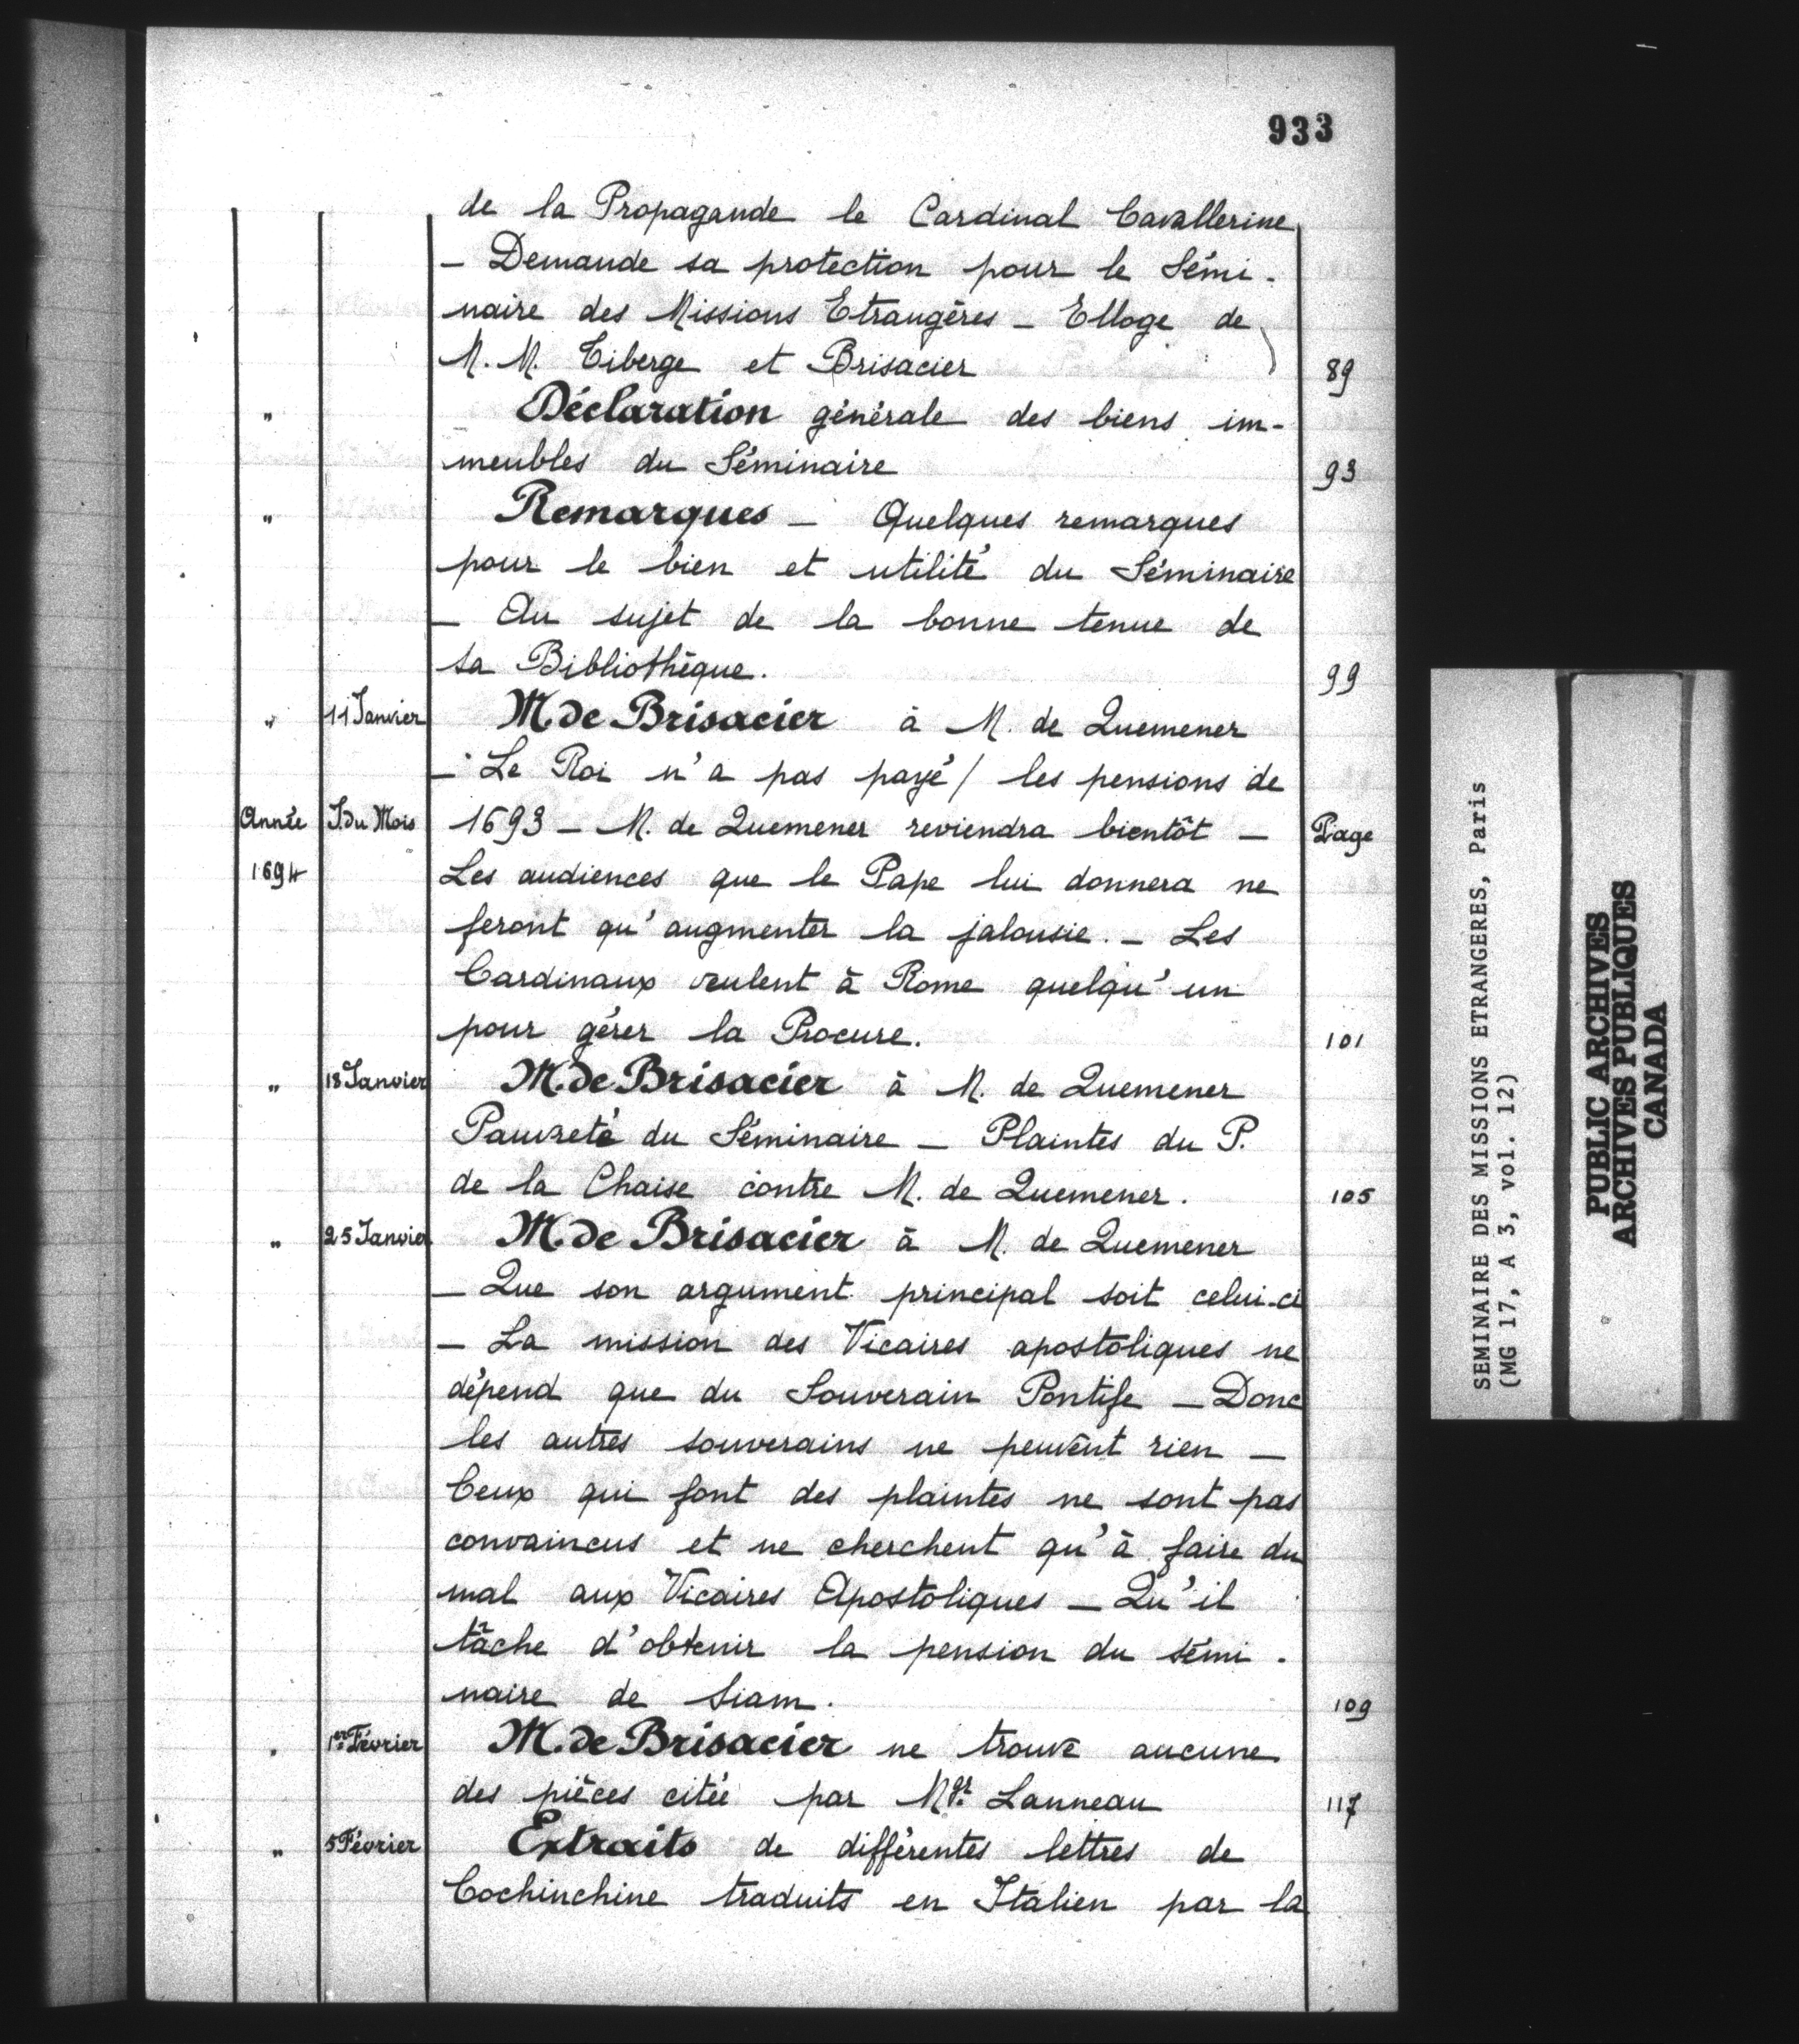 933
de la Propagande le Cardinal Cavallerine
— Demande sa protection pour le Sémi-
naire des Missions Etrangères — Elloge de
M. M. Tiberge et Brisacier 89
" Déclaration générale des biens im-
meubles du Séminaire 93
" Remarques — Quelques remarques
pour le bien et utilité du Séminaire
— Au sujet de la bonne tenue de
sa Bibliothèque. 99
" 11 Janvier M. de Brisacier à M. de Quemener
— Le Roi n'a pas payé / les pensions de
Année J. du Mois 1693 — M. de Quemener reviendra bientôt — Page
1694 Les audiences que le Pape lui donnera ne
feront qu'augmenter la jalousie. — Les
Cardinaux veulent à Rome quelqu'un
pour gérer la Procure. 101
" 18 Janvier M. de Brisacier à M. de Quemener
Pauvreté du Séminaire — Plaintes du P.
de la Chaise contre M. de Quemener. 105
" 25 Janvier M. de Brisacier à M. de Quemener
— Que son argument principal soit celui-ci
— La mission des Vicaires apostoliques ne
dépend que du Souverain Pontife — Donc
les autres souverains ne peuvent rien —
Ceux qui font des plaintes ne sont pas
convaincus et ne cherchent qu'à faire du
mal aux Vicaires Apostoliques — Qu'il
tâche d'obtenir la pension du sémi-
naire de Siam. 109
" 1er Février M. de Brisacier ne trouve aucune
des pièces citée par Mgr. Lanneau 117
" 5 Février Extraits de différentes lettres de
Cochinchine traduits en Italien par la
SEMINAIRE DES MISSIONS ETRANGERES, Paris
(MG 17, A 3, vol. 12)
PUBLIC ARCHIVES
ARCHIVES PUBLIQUES
CANADA